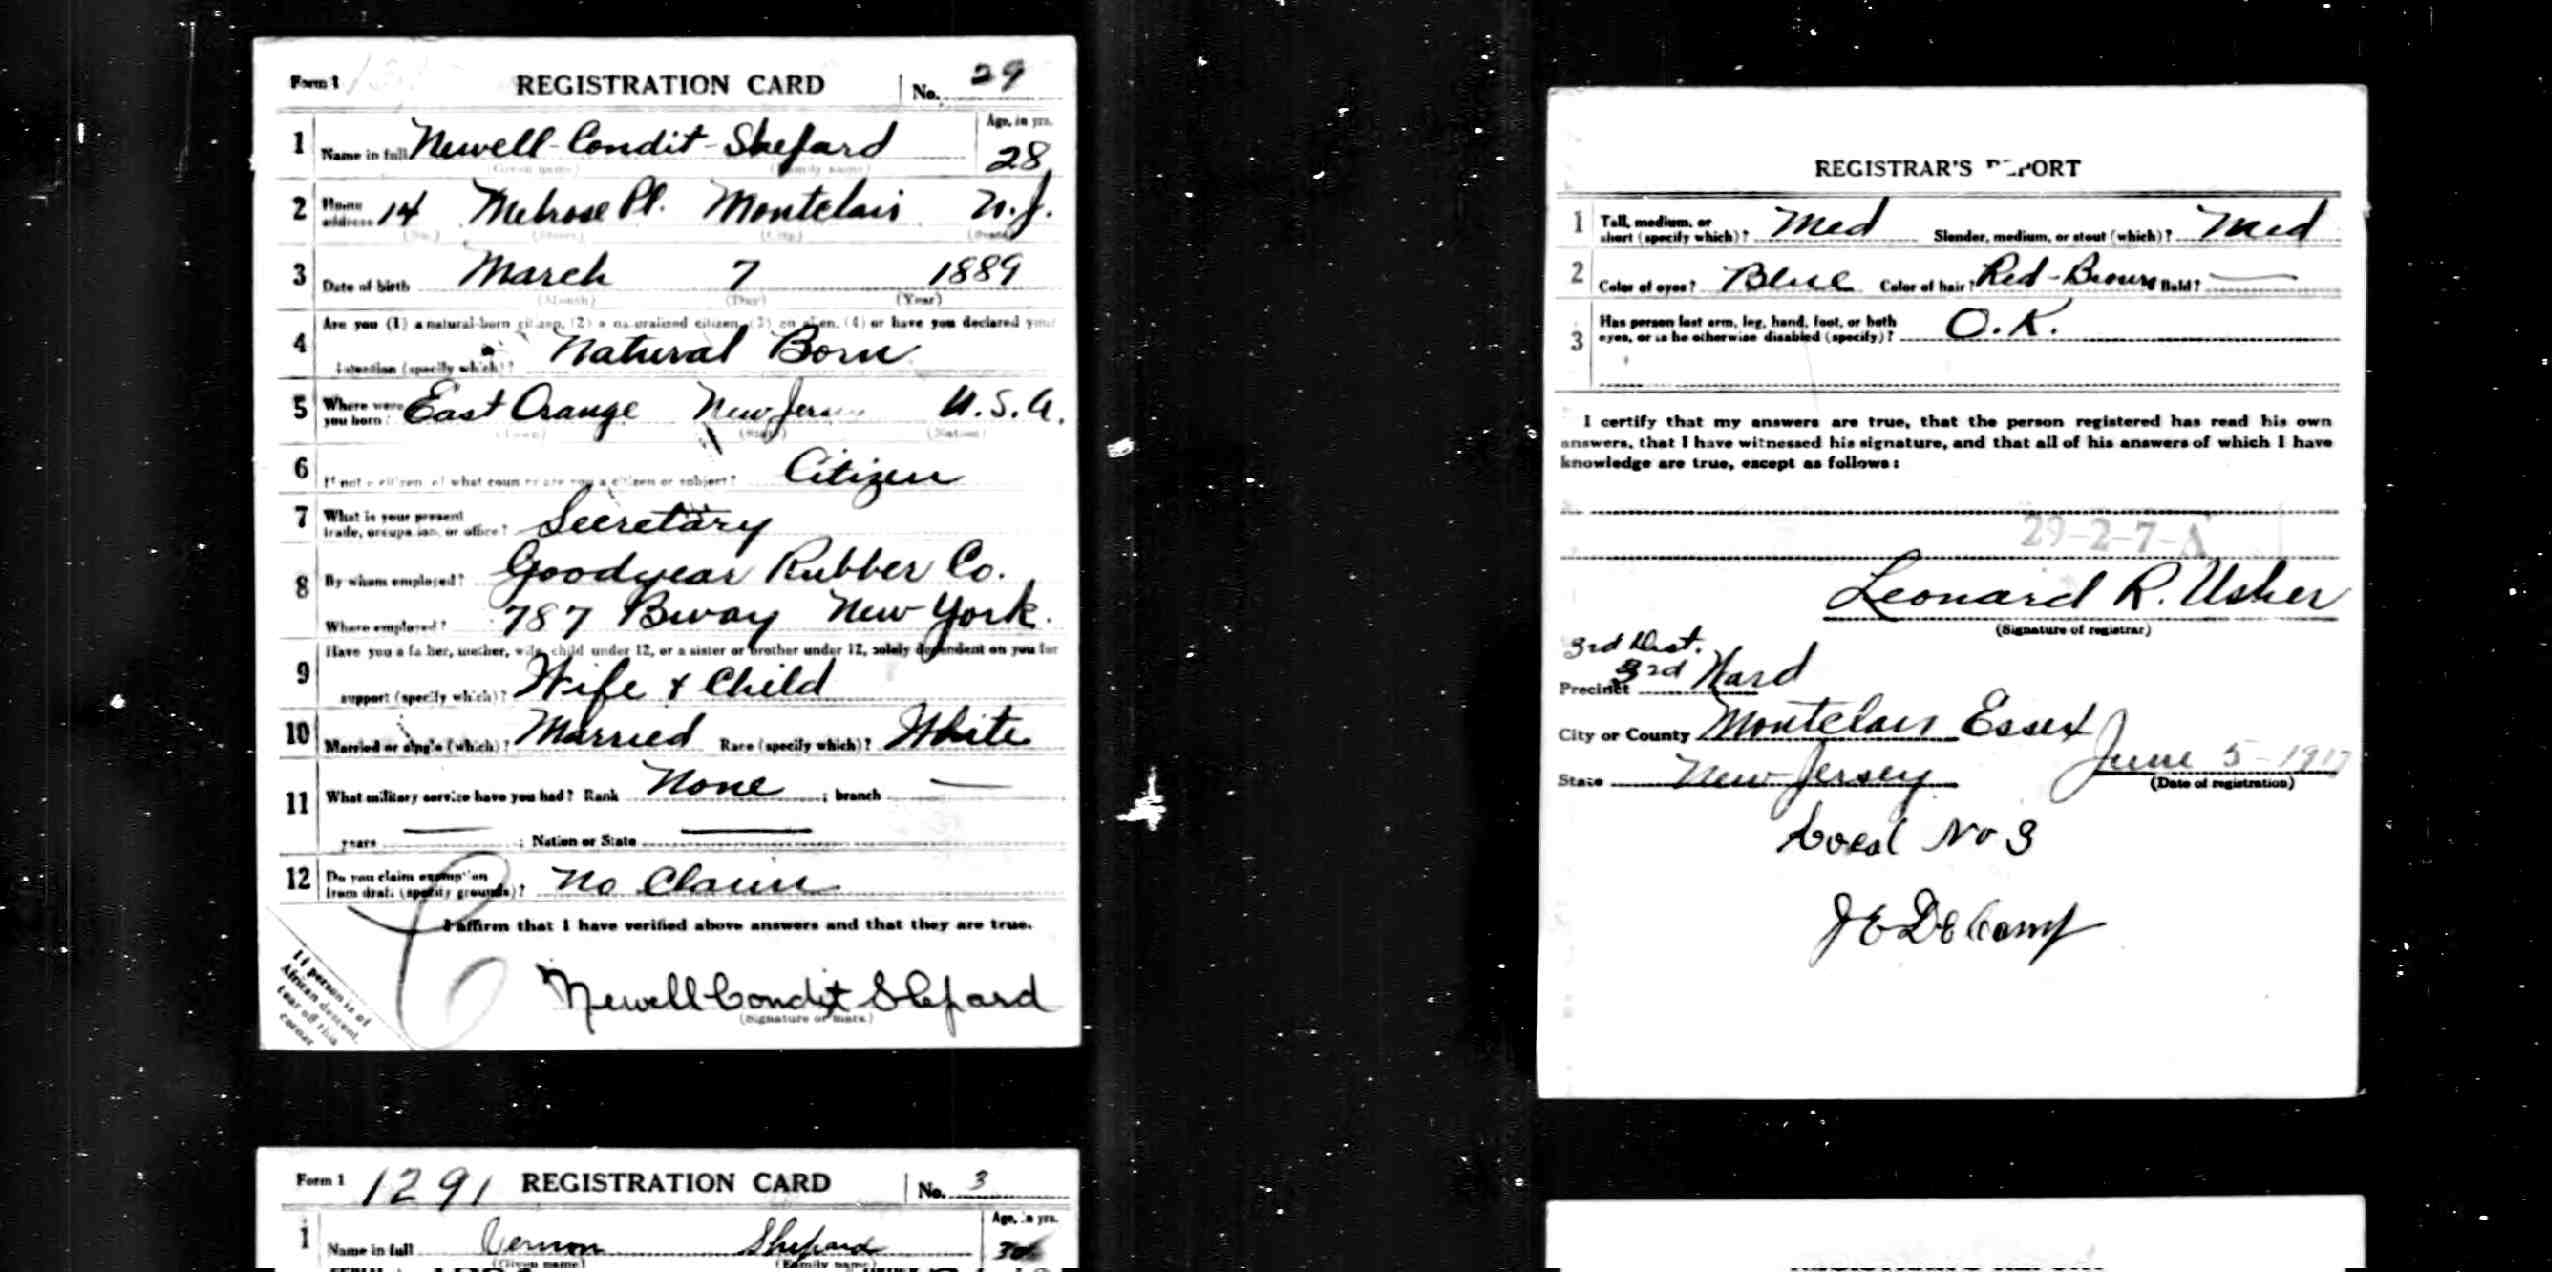 Form 1 REGISTRATION CARD No. 29
1 Name in full Newell-Condit-Shepard Age, in yrs. 28
(Given name) (Family name)
2 Home address 14 Melrose Pl. Montclair N.J.
(No.) (Street) (City) (State)
3 Date of birth March 7 1889
(Month) (Day) (Year)
4 Are you (1) a natural-born citizen, (2) a naturalized citizen, (3) an alien, (4) or have you declared your
intention (specify which)? Natural Born
5 Where were you born? East Orange New Jersey U.S.A.
(Town) (State) (Nation)
6 If not a citizen, of what country are you a citizen or subject? Citizen
7 What is your present trade, occupation, or office? Secretary
8 By whom employed? Goodyear Rubber Co.
Where employed? 787 Bway New York.
9 Have you a father, mother, wife, child under 12, or a sister or brother under 12, solely dependent on you for
support (specify which)? Wife & Child
10 Married or single (which)? Married Race (specify which)? White
11 What military service have you had? Rank None ; branch —
years — ; Nation or State —
12 Do you claim exemption from draft (specify grounds)? No Claim
I affirm that I have verified above answers and that they are true.
Newell Condit Shepard
(Signature or mark)
If person is of
African descent,
tear off this
corner
REGISTRAR'S REPORT
1 Tall, medium, or short (specify which)? Med Slender, medium, or stout (which)? Med
2 Color of eyes? Blue Color of hair? Red-Brown Bald? —
3 Has person lost arm, leg, hand, foot, or both
eyes, or is he otherwise disabled (specify)? O.K.
I certify that my answers are true, that the person registered has read his own
answers, that I have witnessed his signature, and that all of his answers of which I have
knowledge are true, except as follows:
29-2-7-A
Leonard R. Usher
(Signature of registrar)
3rd Dist.
Precinct 3rd Ward
City or County Montclair Essex
State New Jersey June 5-1917
(Date of registration)
Local No 3
J E De Camp
Form 1 1291 REGISTRATION CARD No. 3
1 Name in full Vernon Shepard Age, in yrs.
(Given name) (Family name)